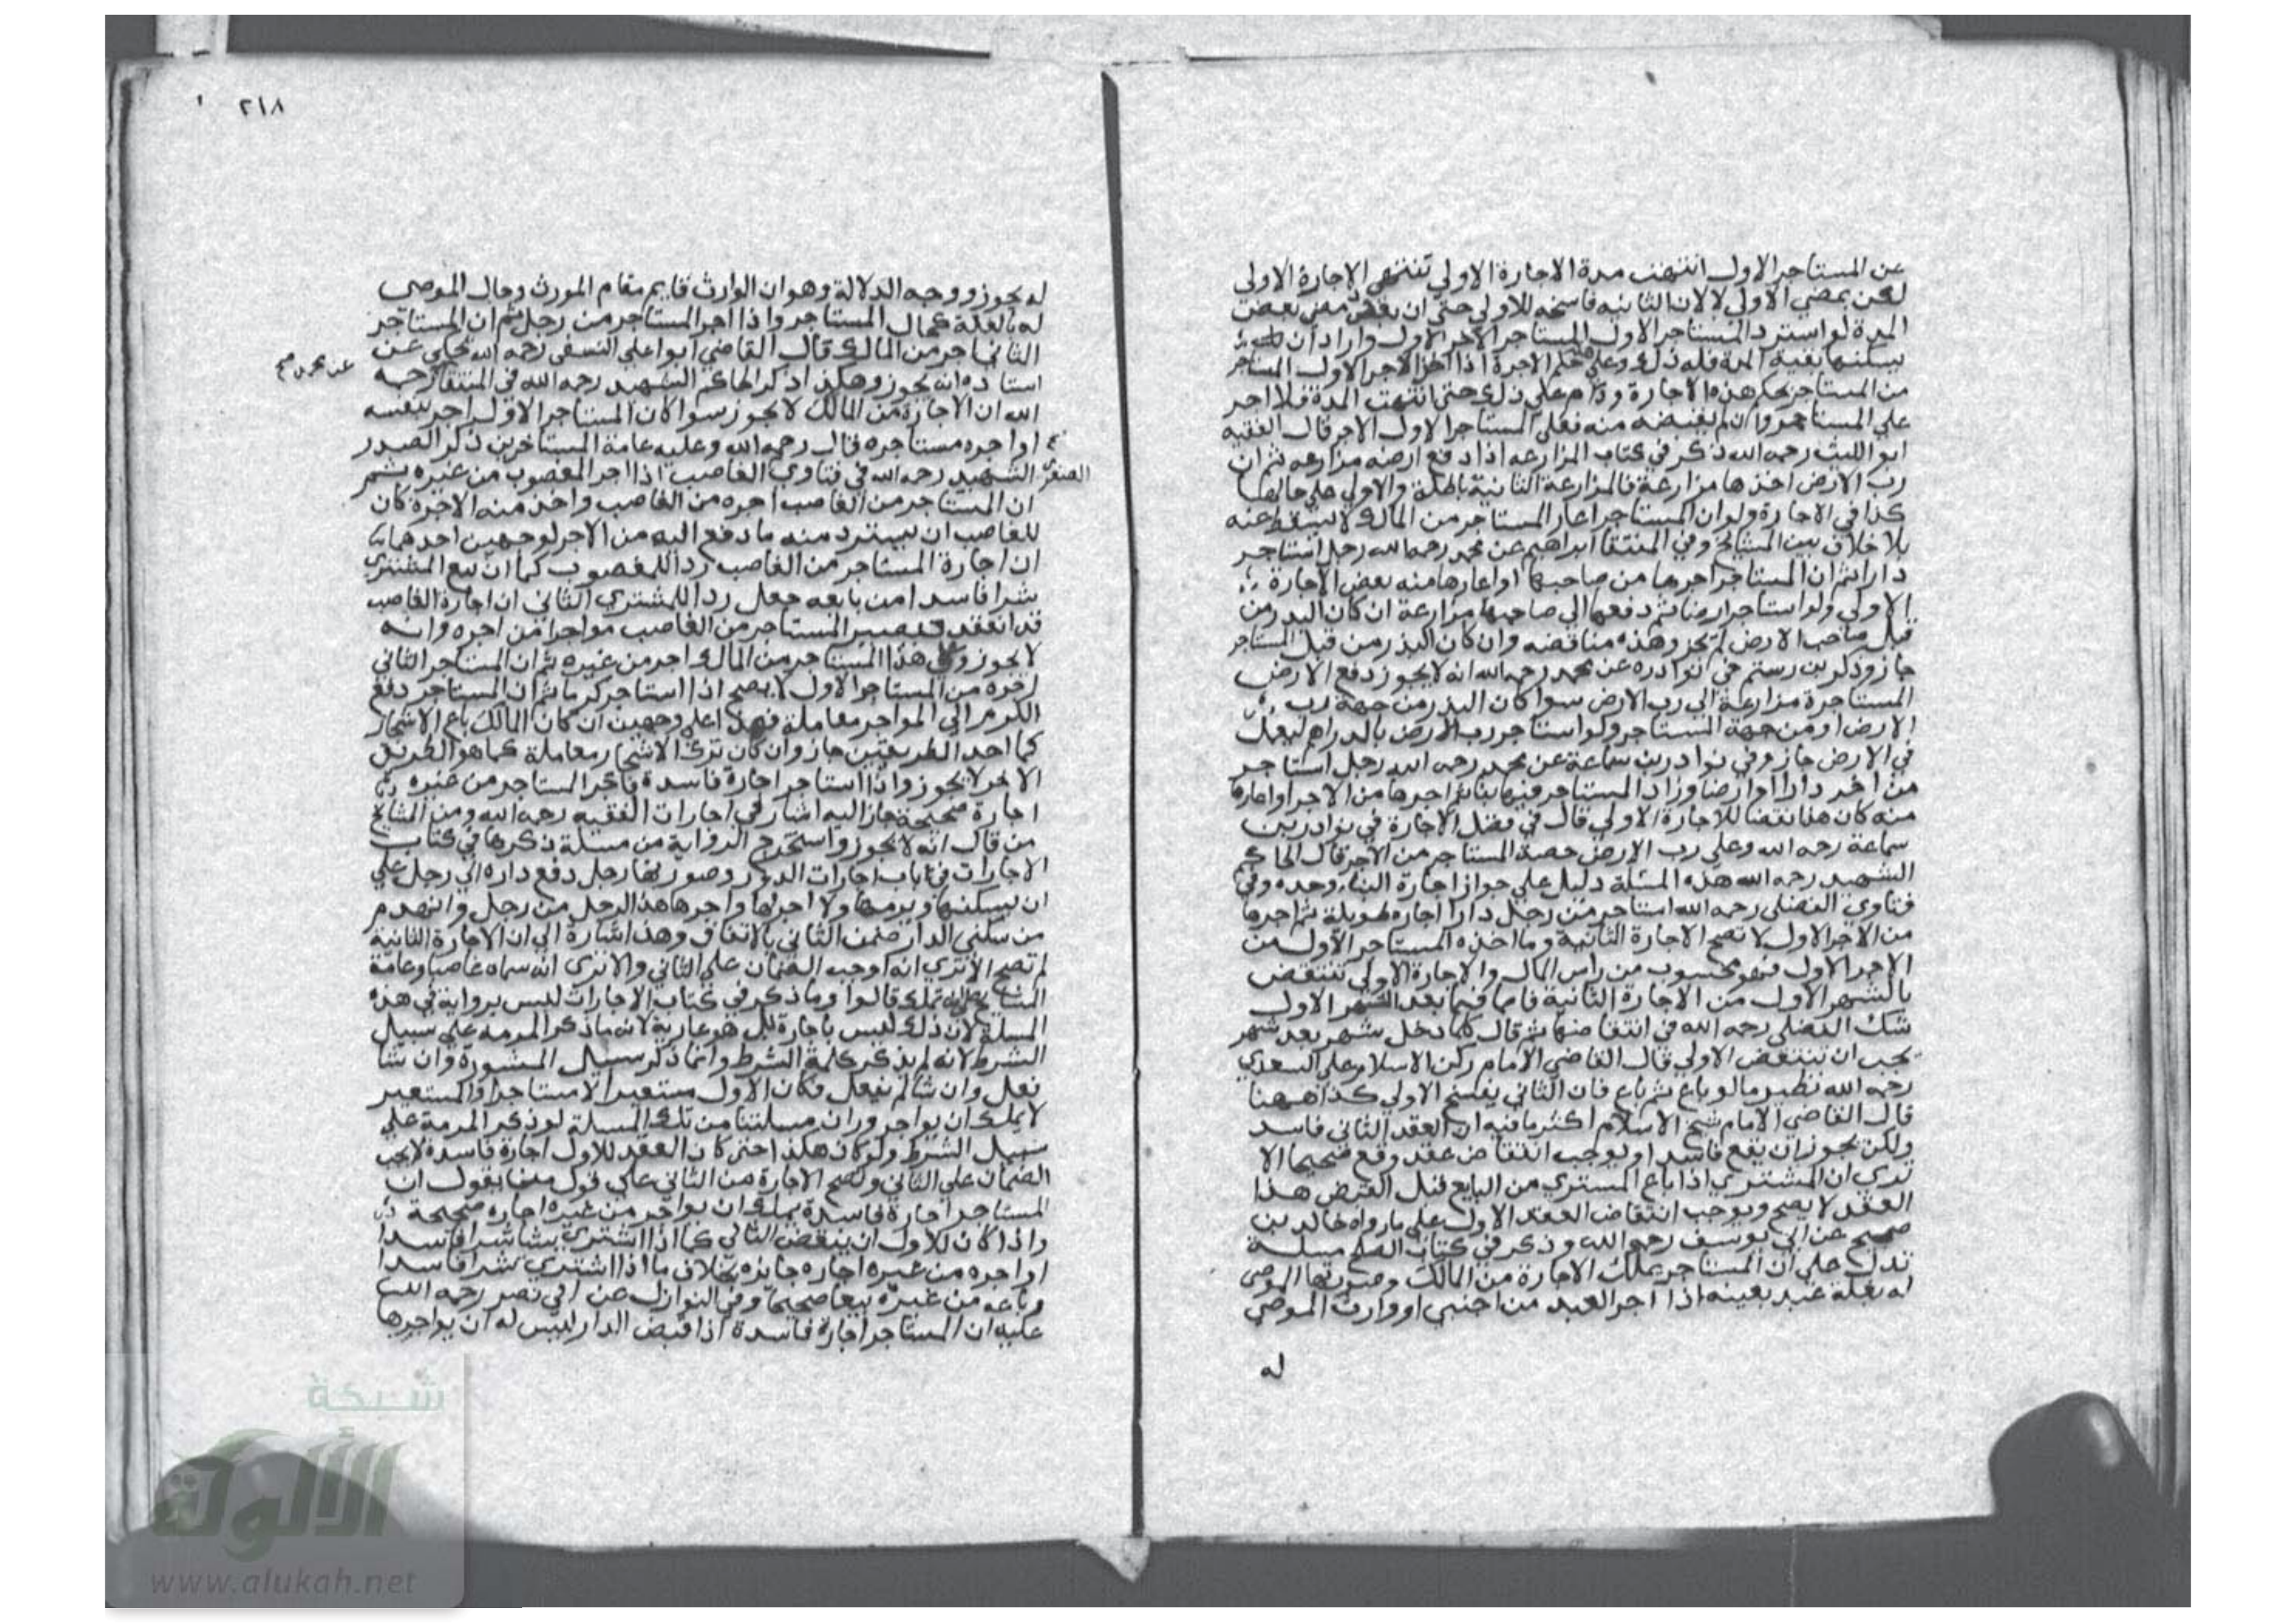 عن المستاجر الاول انتهت مدة الاجارة الاولي تنتهي الاجارة الاولى
لكن بمضي الاولي لا لان الثانيه فاسخه للاولي حتى ان بعض مضي بعض
المدة لو استرد المستاجر الاول المستاجر الاجر الاول واراد ان
يسكنها بقية المدة فله ذلك وعلي حكم الاجرة اذا اخذ الاجر الاول المستاجر
من المستاجر بحكم هذه الاجارة ودام علي ذلك حتى انتهت المدة فلا اجر
علي المستاجر وان لم يقبضه منه فعلى المستاجر الاول الاجر قال الفقيه
ابو الليث رحمه الله ذكر في كتاب المزارعه اذا دفع ارضه مزارعه ثم ان
رب الارض اخذها مزارعة فالمزارعة الثانية باطلة والاولي على حالها
كذا في الاجارة ولو ان المستاجر اعار المستاجر من المالك لا يسقط عنه
بلا خلاف بين المشايخ وفي المنتقا ابراهيم عن محمد رحمه الله رجل استاجر
دارا ثم ان المستاجر اجرها من صاحبها او اعارها منه بعض الاجارة
الاولي ولو استاجر ارضا ثم دفعها الي صاحبها مزارعة ان كان البذر من
قبل صاحب الارض لم يجز وهذه مناقضه وان كان البذر من قبل المستاجر
جاز وذكر بن رستم في نوادره عن محمد رحمه الله انه لا يجوز دفع الارض
المستاجرة مزارعة الي رب الارض سوا كان البذر من جهة رب
الارض او من جهة المستاجر ولو استاجر رب الارض بالدراهم ليعمل
في الارض جاز وفي نوادر بن سماعة عن محمد رحمه الله رجل استاجر
من اخر دارا او ارضا وزاد المستاجر فيها بنا ثم اجرها من الاجر او اعارها
منه كان هذا نقضا للاجارة الاولي قال في فصل الاجارة في نوادر بن
سماعة رحمه الله وعلي رب الارض حصة المستاجر من الاجر قال الحاكم
الشهيد رحمه الله هذه المسئلة دليل علي جواز اجارة البناء وحده وفي
فتاوي الفضلي رحمه الله استاجر من رجل دارا اجاره طويلة ثم اجرها
من الاجر الاول لا تصح الاجارة الثانية وما اخذه المستاجر الاول من
الاجر الاول فهو محسوب من راس المال والاجارة الاولي تنتقض
بالشهر الاول من الاجارة الثانية فاما فيما بعد الشهر الاول
شك الفضلي رحمه الله في انتقاضها ثم قال كلما دخل شهر بعد شهر
يجب ان تنتقض الاولي قال القاضي الامام ركن الاسلام علي السعدي
رحمه الله نظير ما لو باع ثم باع فان الثاني يفسخ الاولي كذا ههنا
قال القاضي الامام شيخ الاسلام اكثر ما فيه ان العقد الثاني فاسد
ولكن يجوز ان يقع فاسدا ويوجب انتقاض عقد وقع صحيحا الا
تري ان المشتري اذا باع المستري من البايع قبل القبض هذا
العقد لا يصح ويوجب انتقاض العقد الاول علي ما رواه خالد بن
صبيح عن ابي يوسف رحمه الله وذكر في كتاب الصلح مسلة
تدل على ان المستاجر يملك الاجارة من المالك وصورتها الموصى
له بغلة عبد بعينه اذا اجر العبد من اجنبي او وارث الموصي
له
٢١٨
له يجوز ووجه الدلالة وهو ان الوارث قايم مقام المورث وحال الموصى
له بالغلة كحال المستاجر واذا اجر المستاجر من رجل ثم ان المستاجر
الثاني اجر من المالك قال القاضي ابو علي النسفى رحمه الله يحكي عن
استاده انه يجوز وهكذا ذكر الحاكم الشهيد رحمه الله في المنتقا رحمه
الله ان الاجارة من المالك لا يجوز سوا كان المستاجر الاول اجر بنفسه
او اجره مستاجره قال رحمه الله وعليه عامة المستاخرين ذكر الصدر
الشهيد رحمه الله في فتاوي الغاصب اذا اجر المغصوب من غيره ثم
الصغرى
ان المستاجر من الغاصب اجره من الغاصب واخذ منه الاجرة كان
للغاصب ان يسترد منه ما دفع اليه من الاجر لوجهين احدهما
ان اجارة المستاجر من الغاصب رد المغصوب كما ان بيع المشتري
شرا فاسدا من بايعه جعل ردا للمشتري الثاني ان اجارة الغاصب
قد انعقد فيصير المستاجر من الغاصب مواجرا من اجره وانه
لا يجوز وفي هذا المستاجر من المالك اجر من غيره ثم ان المستاجر الثاني
اجره من المستاجر الاول لا يصح اذا استاجر كرما ثم ان المستاجر دفع
الكرم الي المواجر معاملة فهذا على وجهين ان كان المالك باع الاشجار
كما احد الطريقين جاز وان كان ترك الاشجار معاملة كما هو الطريق
الاخر لا يجوز واذا استاجر اجارة فاسدة فاجر المستاجر من غيره
اجارة صحيحة جاز اليه اشار في اجارات الفقيه رحمه الله ومن المشايخ
من قال انه لا يجوز واستخرج الرواية من مسئلة ذكرها في كتاب
الاجارات في باب اجارات الدور وصورتها رجل دفع داره الي رجل على
ان يسكنها ويرمها ولا اجر لها واجرها هذا الرجل من رجل وانهدم
من سكنى الدار ضمن الثاني بالاتفاق وهذا اشارة الي ان الاجارة الثانية
لم تصح الا تري انه اوجب الضمان على الثاني والا ترى انه سماه غاصبا وعامة
المشايخ قالوا وما ذكر في كتاب الاجارات ليس برواية في هذه
المسلة لان ذلك ليس باجارة بل هو عارية لانه ما ذكر المرمه علي سبيل
الشرط لانه لم يذكر كلمة الشرط وانما ذكر سبيل المشورة وان شا
فعل وان شا لم يفعل فكان الاول مستعيرا لا مستاجرا والمستعير
لا يملك ان يواجر وزان مسلتنا من تلك المسلة لو ذكر المرمة علي
سبيل الشرط ولو كان هكذا حتى كان العقد للاول اجارة فاسدة لا يجب
الضمان على الثاني وتصح الاجارة من الثاني علي قول من يقول ان
المستاجر اجارة فاسدة يملك ان يواجر من غيره اجاره صحيحة
واذا كان للاول ان ينقض الثاني كما اذا اشتري شيا شرا فاسدا
او اجره من غيره اجاره جايزه بخلاف ما اذا اشتري شرا فاسدا
وباعه من غيره بيعا صحيحا وفي النوازل عن ابي نصر رحمه الله
عليه ان المستاجر اجارة فاسدة اذا قبض الدار ليس له ان يواجرها
شبكة
الألوكة
www.alukah.net